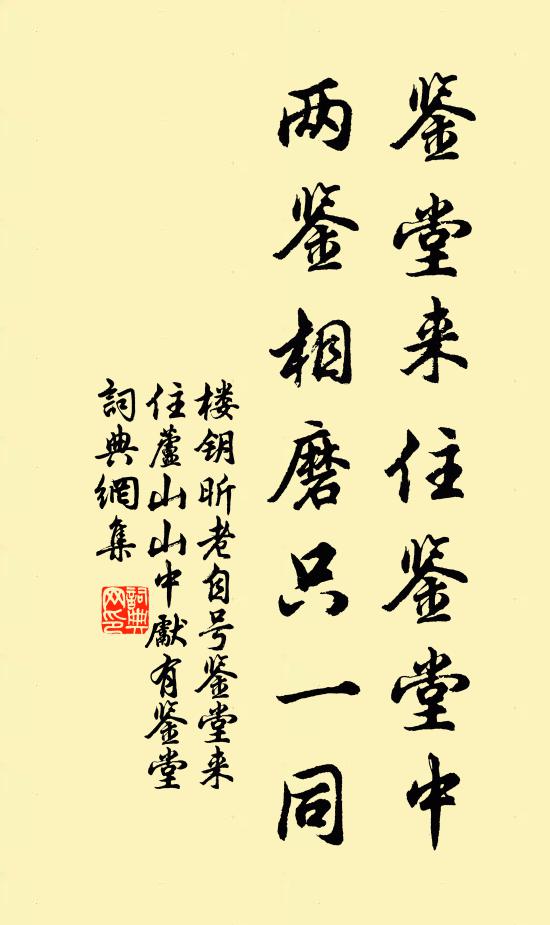 鉴堂来住鉴堂中
两鉴相磨只一同
楼钥昕老自号鉴堂来
住蘆山山中獻有鉴堂
詞典網集
詞典
网印